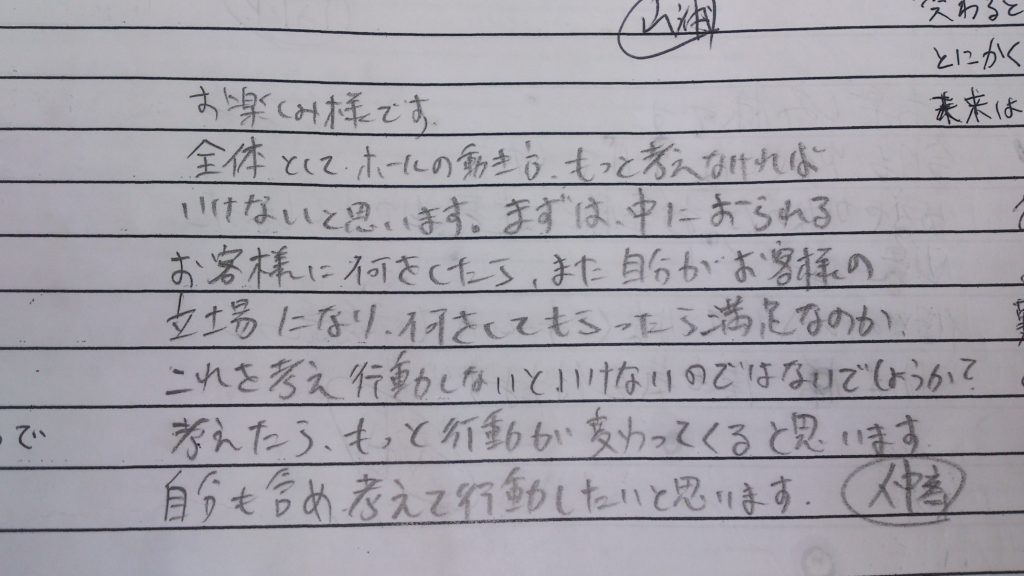 山浦
変わると
とにかく
未来は
お楽しみ様です.
全体として.ホールの動き方、もっと考えなければ
いけないと思います。まずは、中におられる
お客様に何をしたら、また自分がお客様の
立場になり、何をしてもらったら満足なのか、
これを考え行動しないといけないのではないでしょうか?
で
考えたら、もっと行動が変わってくると思います
自分も含め考えて行動したいと思います.